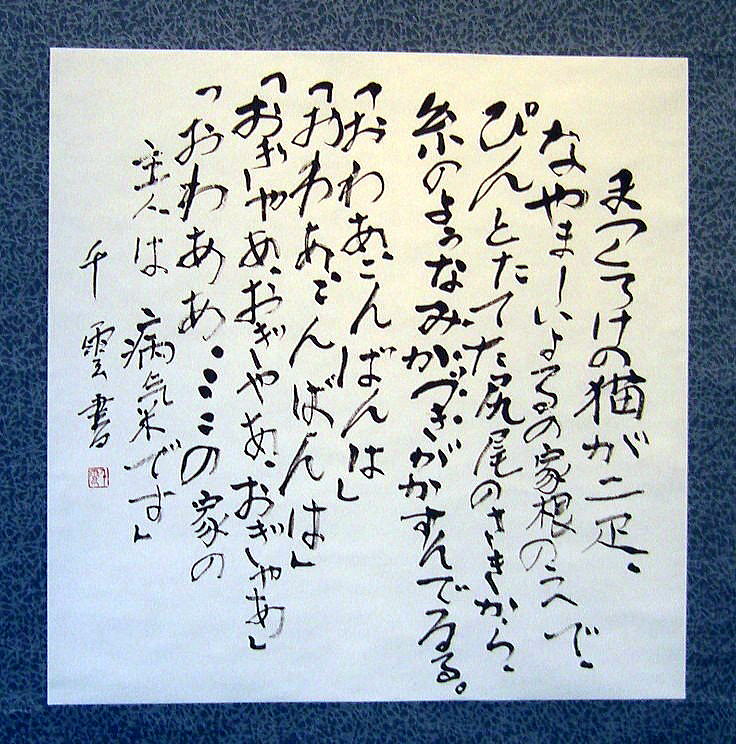 まつくろけの猫が二疋、
なやましいよるの家根のうへで、
ぴんとたてた尻尾のさきから、
糸のようなみかづきがかすんでゐる。
「おわあ、こんばんは」
「おわあ、こんばんは」
「おぎやあ、おぎやあ、おぎやあ」
「おわああ、ここの家の
主人は病気です」
千雲書